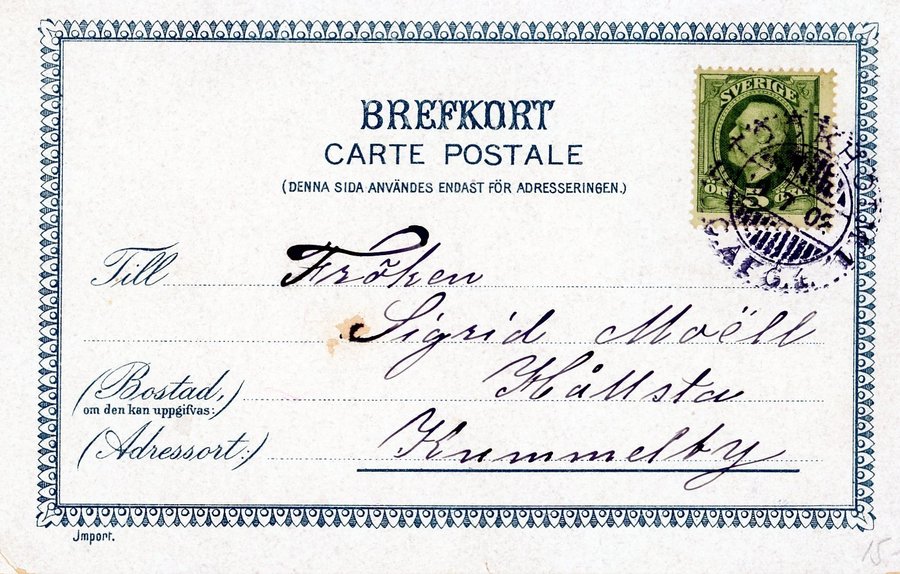 BREFKORT
CARTE POSTALE
(DENNA SIDA ANVÄNDES ENDAST FÖR ADRESSERINGEN.)
SVERIGE
ÖRE 5 ÖRE
Till Fröken
Sigrid Moëll
(Bostad,) Hållsta
om den kan uppgifvas:
(Adressort:) Kummelby
Import.
15-